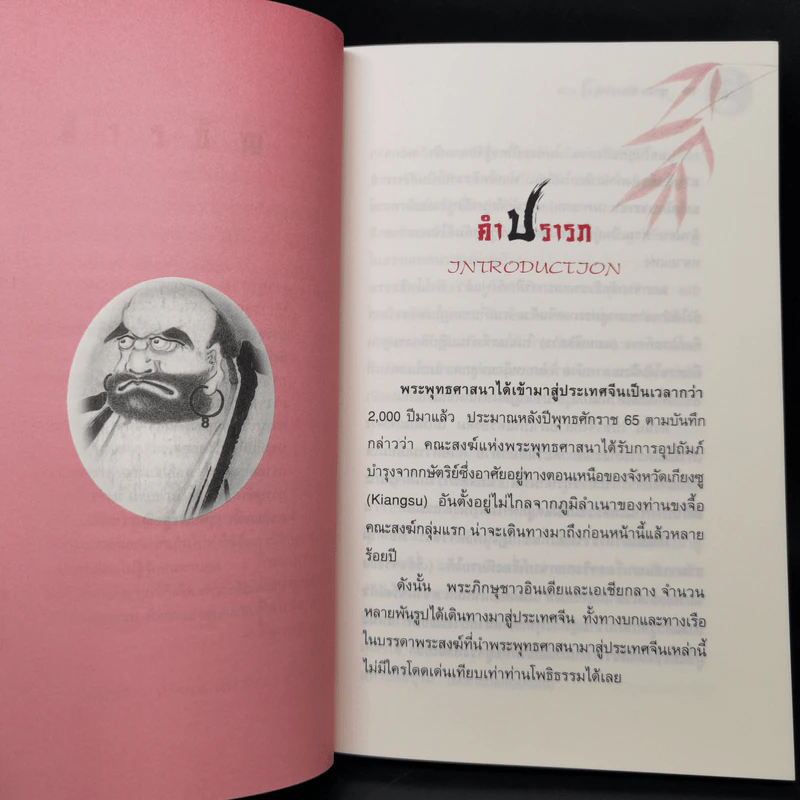 8
คำปรารภ
INTRODUCTION
พระพุทธศาสนาได้เข้ามาสู่ประเทศจีนเป็นเวลากว่า
2,000 ปีมาแล้ว ประมาณหลังปีพุทธศักราช 65 ตามบันทึก
กล่าวว่า คณะสงฆ์แห่งพระพุทธศาสนาได้รับการอุปถัมภ์
บำรุงจากกษัตริย์ซึ่งอาศัยอยู่ทางตอนเหนือของจังหวัดเกียงซู
(Kiangsu) อันตั้งอยู่ไม่ไกลจากภูมิลำเนาของท่านขงจื้อ
คณะสงฆ์กลุ่มแรก น่าจะเดินทางมาถึงก่อนหน้านี้แล้วหลาย
ร้อยปี
ดังนั้น พระภิกษุชาวอินเดียและเอเชียกลาง จำนวน
หลายพันรูปได้เดินทางมาสู่ประเทศจีน ทั้งทางบกและทางเรือ
ในบรรดาพระสงฆ์ที่นำพระพุทธศาสนามาสู่ประเทศจีนเหล่านี้
ไม่มีใครโดดเด่นเทียบเท่าท่านโพธิธรรมได้เลย